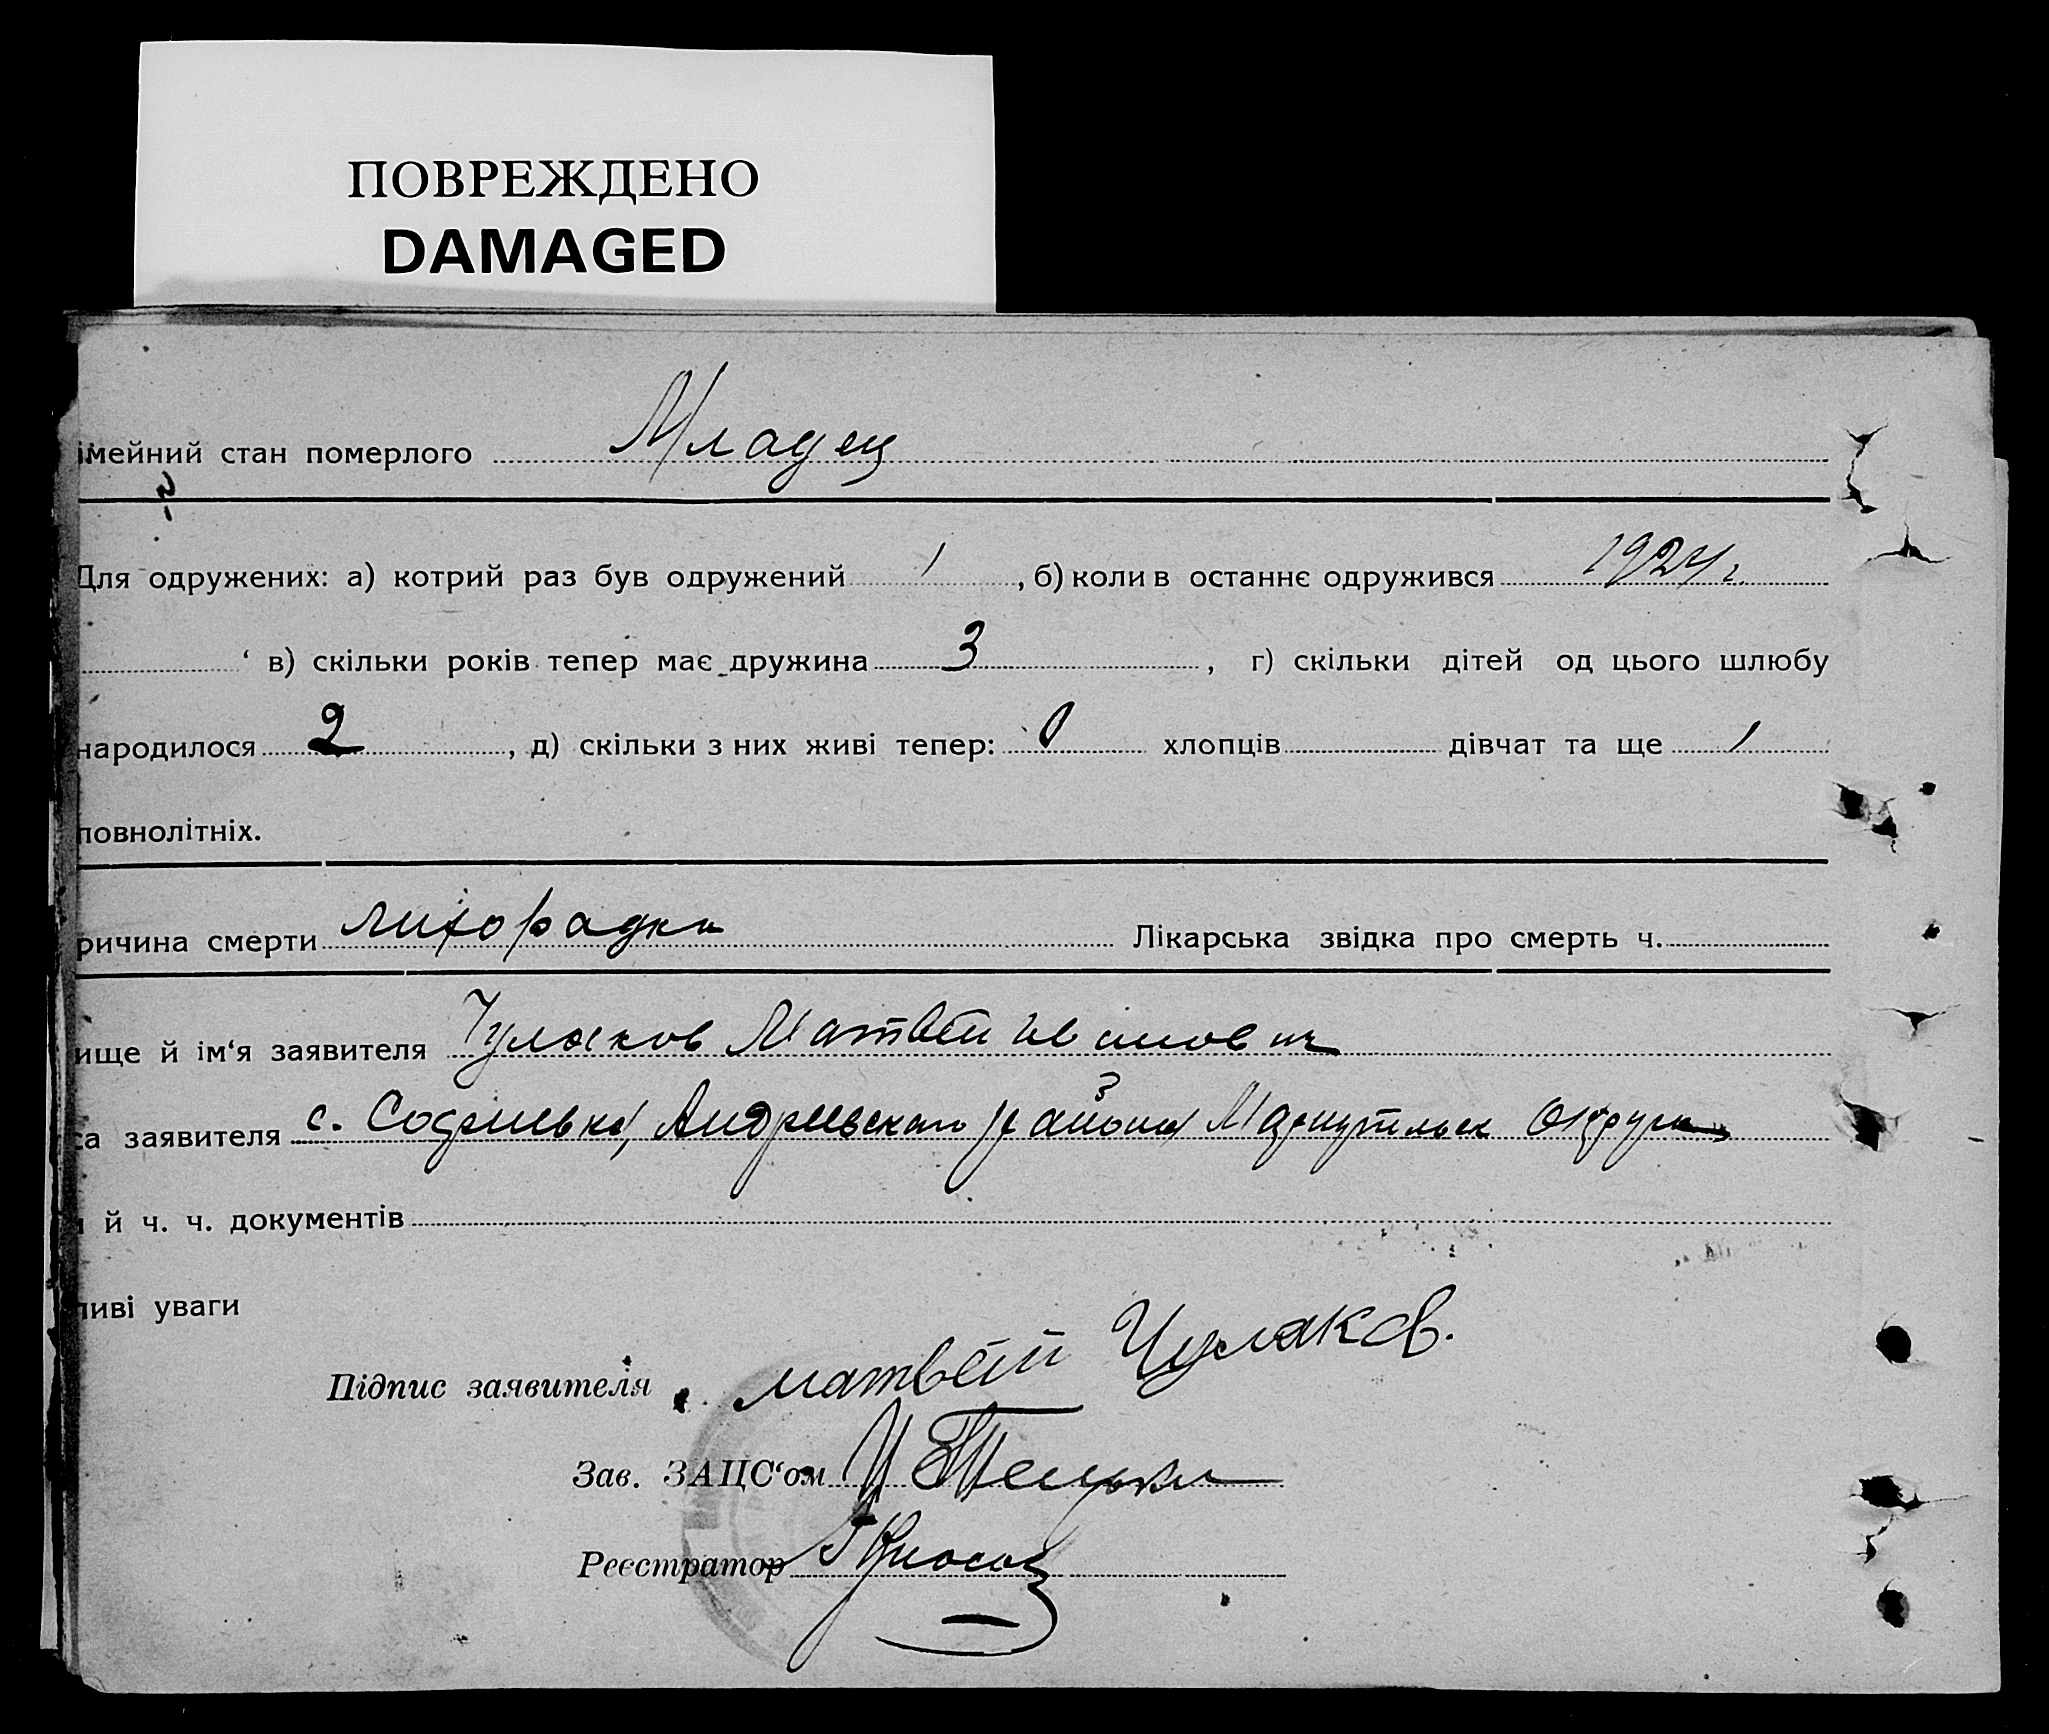 ПОВРЕЖДЕНО
DAMAGED
імейний стан померлого Младец
Для одружених: а) котрий раз був одружений 1, б) коли в останнє одружився 1924 г.
‘ в) скільки років тепер має дружина 3, г) скільки дітей од цього шлюбу
народилося 2, д) скільки з них живі тепер: 0 хлопців дівчат та ще 1
повнолітніх.
ричина смерти лихорадка Лікарська звідка про смерть ч.
ище й ім‘я заявителя Чулаков Матвей Иванович
са заявителя с. Андреевскаго района Мариупольск Округа
й ч. ч. документів
ливі уваги
Підпис заявителя матвей Чулаков.
Зав. ЗАЦС‘ом
Реєстратор